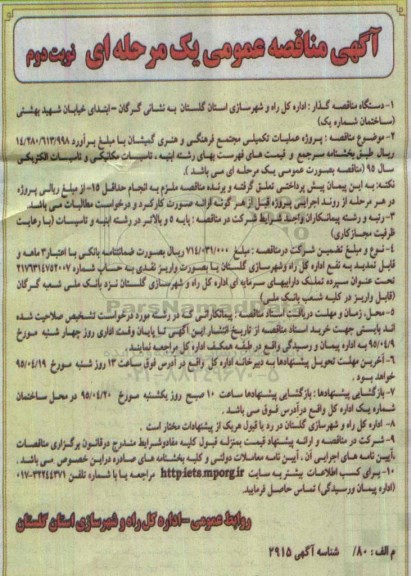 آگهی مناقصه عمومی یک مرحله ای نوبت دوم
۱- دستگاه مناقصه گذار : اداره کل راه و شهرسازی استان گلستان به نشانی گرگان – ابتدای خیابان شهید بهشتی
(ساختمان شماره یک)
۲- موضوع مناقصه : پروژه عملیات تکمیلی مجتمع فرهنگی و هنری گمیشان با مبلغ برآورد ۱۴/۲۸۰/۶۱۳/۹۹۸
ریال طبق بخشنامه سرجمع و قیمت های فهرست بهای رشته ابنیه ، تاسیسات مکانیکی و تاسیسات الکتریکی
سال ۹۵ (مناقصه بصورت عمومی یک مرحله ای می باشد ).
نکته: به این پیمان پیش پرداختی تعلق نگرفته و برنده مناقصه ملزم به انجام حداقل ۱۵٪ از مبلغ ریالی پروژه
در هر مرحله از روند اجرایی پروژه قبل از هر گونه ارائه صورت کارکرد و درخواست مطالبات می باشد
۳- رتبه و رشته پیمانکاران واجد شرایط شرکت در مناقصه : پایه ۵ و بالاتر در رشته ابنیه و تاسیسات (با رعایت
ظرفیت مجاز کاری)
۴- نوع و مبلغ تضمین شرکت درمناقصه : مبلغ ۷۱۴/۰۳۱/۰۰۰ ریال بصورت ضمانتنامه بانکی با اعتبار ۳ ماهه و
قابل تمدید به نفع اداره کل راه وشهرسازی گلستان یا بصورت واریز نقدی به حساب شماره ۲۱۷۶۳۱۴۷۵۲۰۰۷
تحت عنوان سپرده تملیک داراییهای سرمایه ای اداره کل راه و شهرسازی گلستان نزد بانک ملی شعبه گرگان
(قابل واریز در کلیه شعب بانک ملی)
۵- محل، زمان و مهلت دریافت اسناد مناقصه : پیمانکارانی که در رشته مورد درخواست تشخیص صلاحیت شده
اند بایستی جهت خرید اسناد مناقصه از تاریخ انتشار این آگهی تا پایان وقت اداری روز چهار شنبه مورخ
۹۵/۰۴/۹ به اداره پیمان و رسیدگی واقع در طبقه همکف اداره کل مراجعه نمایند .
۶- آخرین مهلت تحویل پیشنهادها به دبیرخانه اداره کل واقع در آدرس فوق ساعت ۱۳ روز شنبه مورخ ۹۵/۰۴/۱۹
خواهد بود .
۷- بازگشایی پیشنهادها : بازگشایی پیشنهادها ساعت ۱۰ صبح روز یکشنبه مورخ ۹۵/۰۴/۲۰ در محل ساختمان
شماره یک اداره کل واقع درآدرس فوق می باشد .
۸- اداره کل راه و شهرسازی گلستان در رد یا قبول هریک از پیشنهادات مختار است .
۹- شرکت در مناقصه و ارائه پیشنهاد قیمت بمنزله قبول کلیه مفادوشرایط مندرج درقانون برگزاری مناقصات
،آیین نامه های اجرایی آن ، آیین نامه معاملات دولتی و کلیه بخشنامه های صادره دراین خصوص می باشد .
۱۰- برای کسب اطلاعات بیشتر به سایت http:iets.mporg.ir مراجعه یا با شماره تلفن ۳۲۲۴۴۳۷۱-۰۱۷
(اداره پیمان ورسیدگی) تماس حاصل فرمایید.
روابط عمومی – اداره کل راه و شهرسازی استان گلستان
م الف : ۸۰/ شناسه آگهی ۲۹۱۵